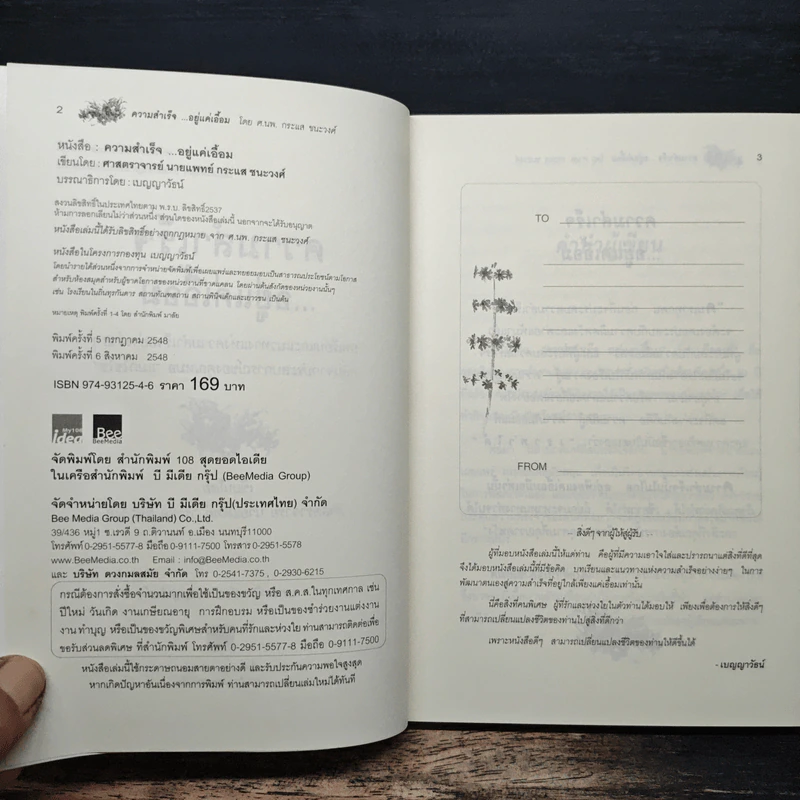 2
ความสำเร็จ ...อยู่แค่เอื้อม โดย ศ.นพ. กระแส ชนะวงศ์
หนังสือ : ความสำเร็จ ...อยู่แค่เอื้อม
เขียนโดย : ศาสตราจารย์ นายแพทย์ กระแส ชนะวงศ์
บรรณาธิการโดย : เบญญาวัธน์
สงวนลิขสิทธิ์ในประเทศไทยตาม พ.ร.บ. ลิขสิทธิ์2537
ห้ามการลอกเลียนไม่ว่าส่วนหนึ่ง ส่วนใดของหนังสือเล่มนี้ นอกจากจะได้รับอนุญาต
หนังสือเล่มนี้ได้รับลิขสิทธิ์อย่างถูกกฎหมาย จาก ศ.นพ. กระแส ชนะวงศ์
หนังสือในโครงการกองทุน เบญญาวัธน์
โดยนำรายได้ส่วนหนึ่งจากการจำหน่ายจัดพิมพ์เพื่อเผยแพร่และทยอยมอบเป็นสาธารณประโยชน์ตามโอกาส
สำหรับห้องสมุดสำหรับผู้ขาดโอกาสของหน่วยงานที่ขาดแคลน โดยผ่านต้นสังกัดของหน่วยงานนั้นๆ
เช่น โรงเรียนในถิ่นทุรกันดาร สถานทัณฑสถาน สถานพินิจเด็กและเยาวชน เป็นต้น
หมายเหตุ พิมพ์ครั้งที่ 1-4 โดย สำนักพิมพ์ มาลัย
พิมพ์ครั้งที่ 5 กรกฎาคม 2548
พิมพ์ครั้งที่ 6 สิงหาคม 2548
ISBN 974-93125-4-6 ราคา 169 บาท
My108 idea
Bee BeeMedia
จัดพิมพ์โดย สำนักพิมพ์ 108 สุดยอดไอเดีย
ในเครือสำนักพิมพ์ บี มีเดีย กรุ๊ป (BeeMedia Group)
จัดจำหน่ายโดย บริษัท บี มีเดีย กรุ๊ป(ประเทศไทย) จำกัด
Bee Media Group (Thailand) Co.,Ltd.
39/436 หมู่1 ซ.เรวดี 9 ถ.ติวานนท์ อ.เมือง นนทบุรี11000
โทรศัพท์ 0-2951-5577-8 มือถือ 0-9111-7500 โทรสาร 0-2951-0578
www.BeeMedia.co.th Email : info@BeeMedia.co.th
และ บริษัท ดวงกมลสมัย จำกัด โทร 0-2541-7375 , 0-2930-6215
กรณีต้องการสั่งซื้อจำนวนมากเพื่อใช้เป็นของขวัญ หรือ ส.ค.ส.ในทุกเทศกาล เช่น
ปีใหม่ วันเกิด งานเกษียณอายุ การฝึกอบรม หรือเป็นของชำร่วยงานแต่งงาน
งาน ทำบุญ หรือเป็นของขวัญพิเศษสำหรับคนที่รักและห่วงใย ท่านสามารถติดต่อเพื่อ
ขอรับส่วนลดพิเศษ ที่สำนักพิมพ์ โทรศัพท์ 0-2951-5577-8 มือถือ 0-9111-7500
หนังสือเล่มนี้ใช้กระดาษถนอมสายตาอย่างดี และรับประกันความพอใจสูงสุด
หากเกิดปัญหาอันเนื่องจากการพิมพ์ ท่านสามารถเปลี่ยนเล่มใหม่ได้ทันที
3
TO
FROM
- สิ่งดีๆ จากผู้ให้สู่ผู้รับ
ผู้ที่มอบหนังสือเล่มนี้ให้แด่ท่าน คือผู้ที่มีความเอาใจใส่และปรารถนาแต่สิ่งที่ดีที่สุด
จึงได้มอบหนังสือเล่มนี้ที่มีข้อคิด บทเรียนและแนวทางแห่งความสำเร็จอย่างง่ายๆ ในการ
พัฒนาตนเองสู่ความสำเร็จที่อยู่ใกล้เพียงแค่เอื้อมเท่านั้น
นี่คือสิ่งที่คนพิเศษ ผู้ที่รักและห่วงใยในตัวท่านได้มอบให้ เพียงเพื่อต้องการให้สิ่งดีๆ
ที่สามารถเปลี่ยนแปลงชีวิตของท่านไปสู่สิ่งที่ดีกว่า
เพราะหนังสือดีๆ สามารถเปลี่ยนแปลงชีวิตของท่านให้ดีขึ้นได้
- เบญญาวัธน์